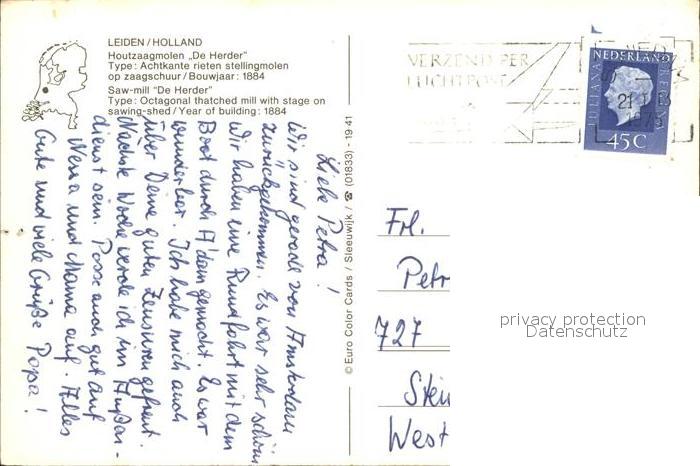 LEIDEN / HOLLAND
Houtzaagmolen „De Herder"
Type: Achtkante rieten stellingmolen
op zaagschuur / Bouwjaar: 1884
Saw-mill "De Herder"
Type: Octagonal thatched mill with stage on
sawing-shed / Year of building: 1884
Liebe Petra!
Wir sind gerade von Amsterdam
zurückgekommen. Es war sehr schön
Wir haben eine Rundfahrt mit dem
Boot durch A'dam gemacht. Es war
wunderbar. Ich habe mich auch
über Deine guten Zensuren gefreut.
Nächste Woche werde ich im Außen-
dienst sein. Passe auch gut auf
Mama auf. Alles
Gute und viele Grüße Papa!
© Euro Color Cards / Sleeuwijk / ☎ (01833) - 19 41
VERZEND PER
LUCHTPOST
NEDERLAND
JULIANA REGINA
21
1975
45C
Frl.
Petr
727
Stei
West
privacy protection
Datenschutz